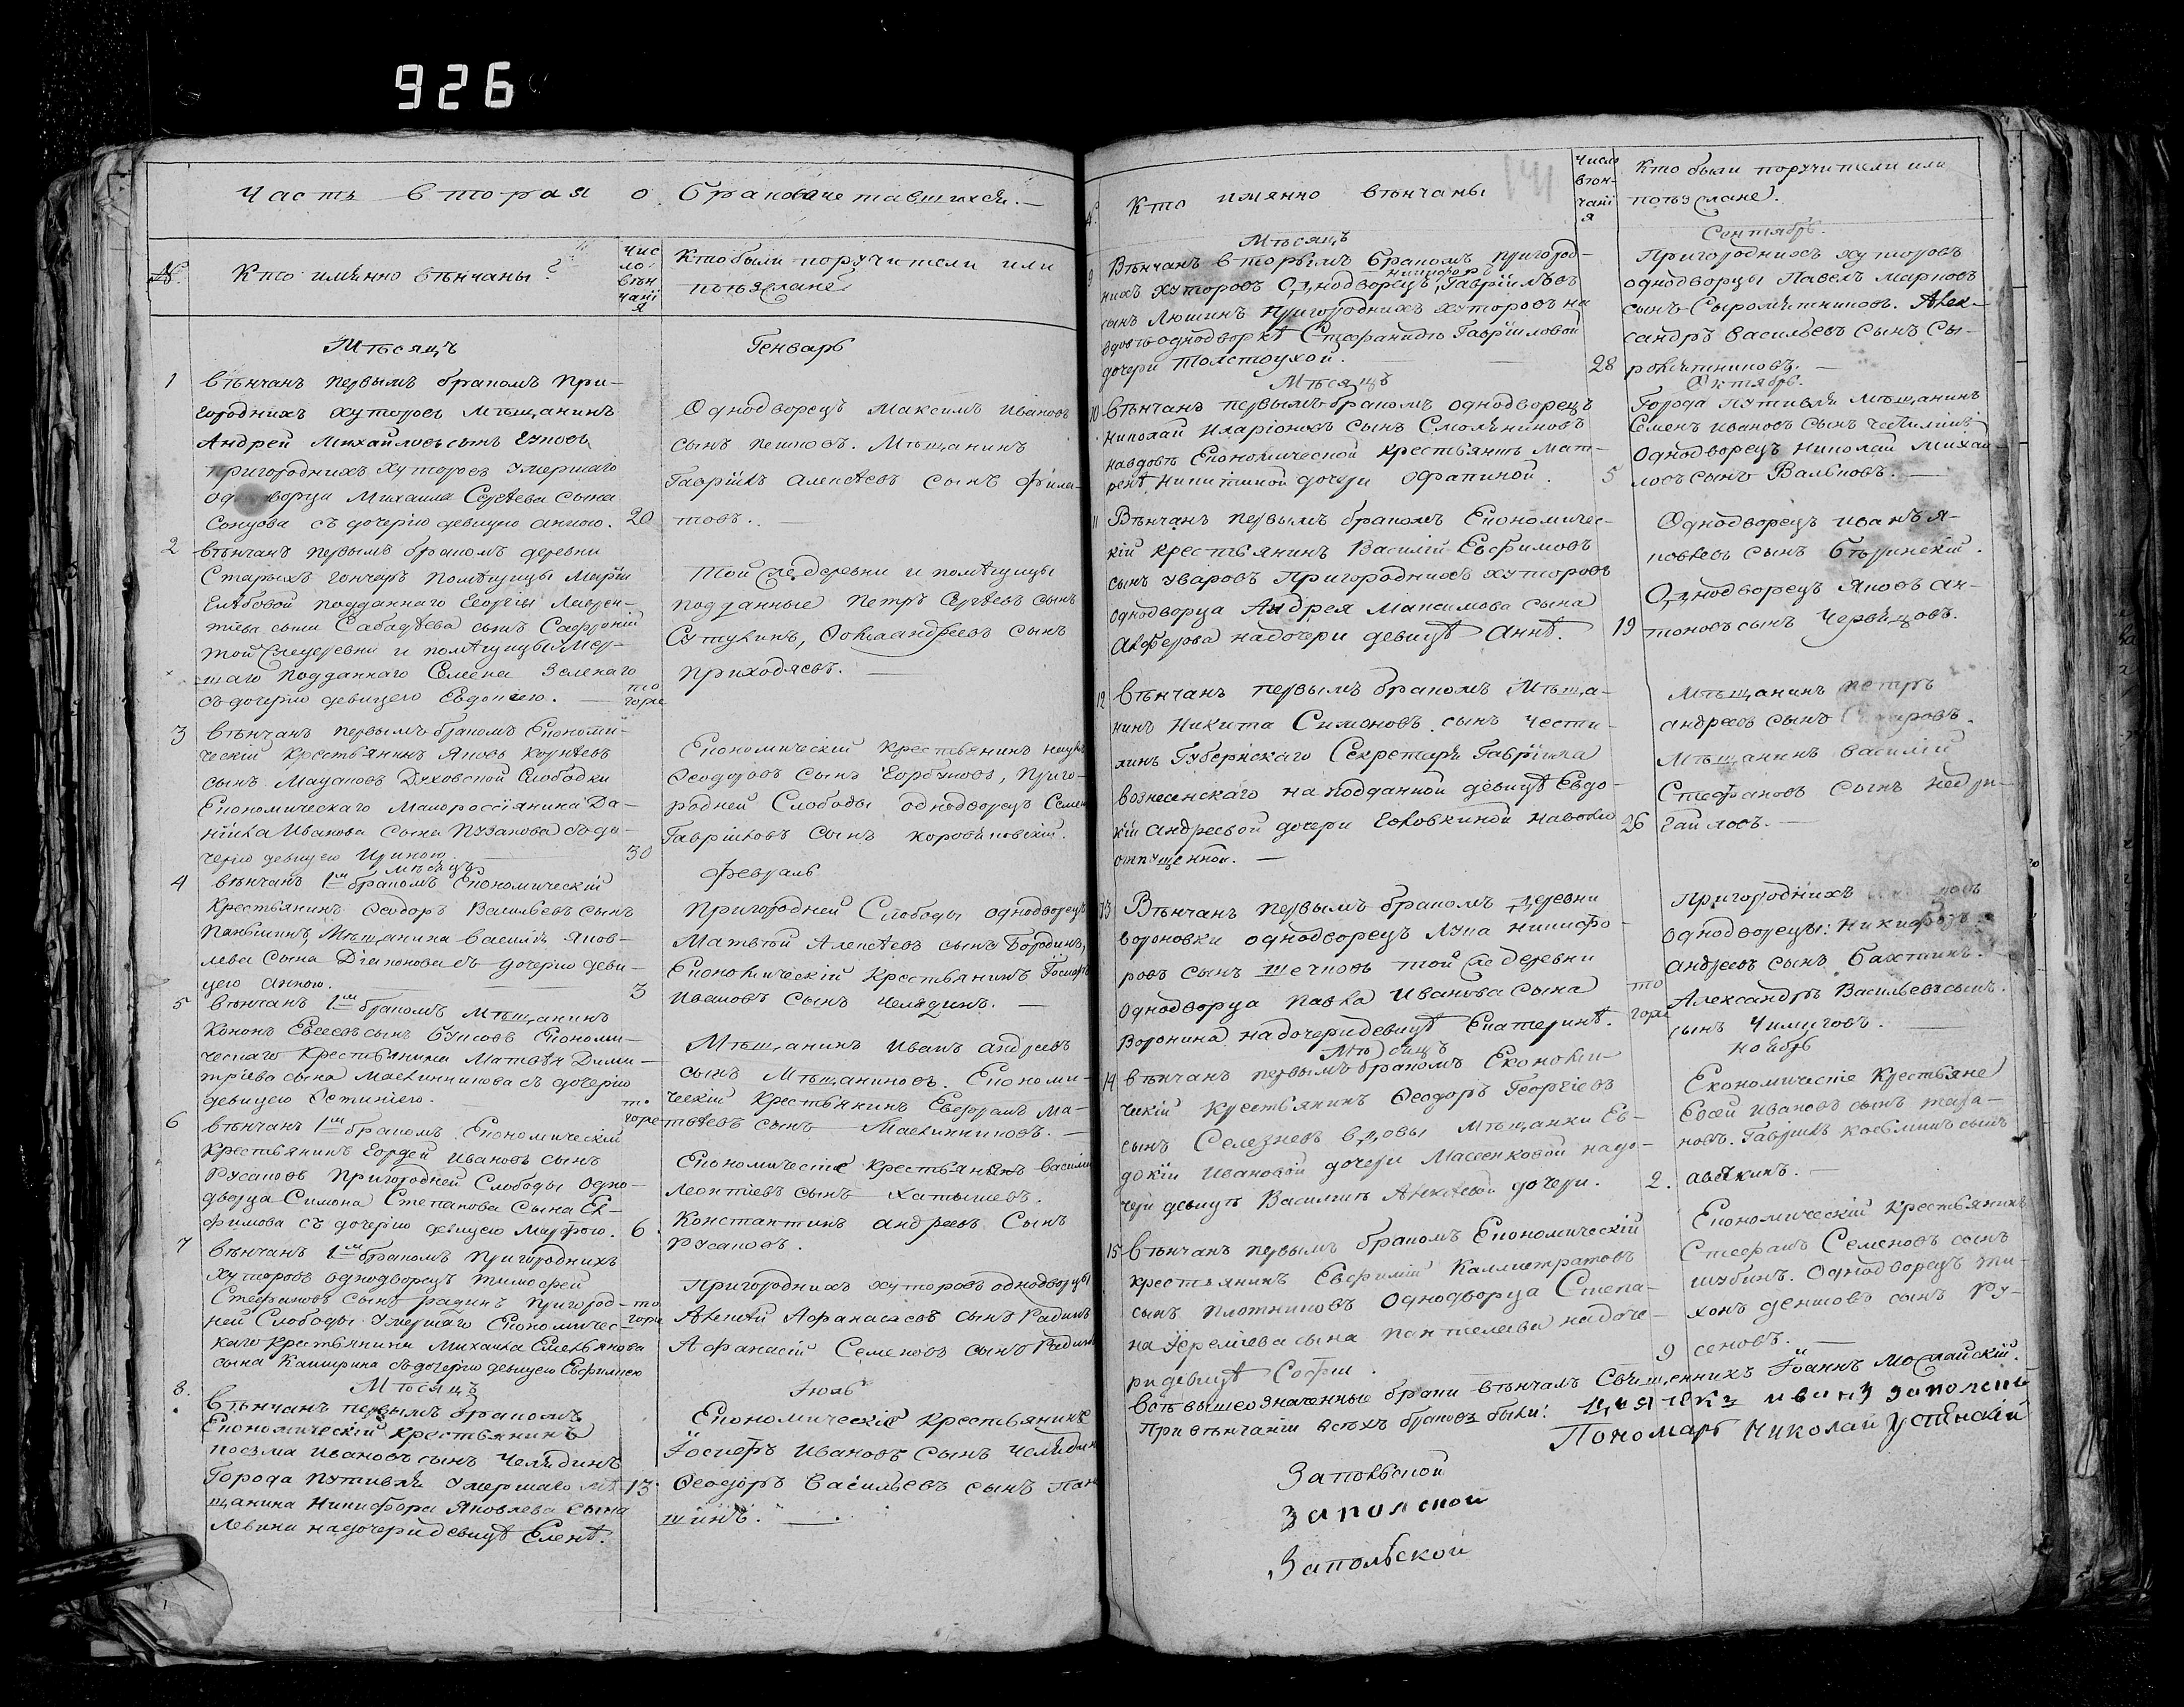 926
Часть вторая о бракосочетавшихся. —
№.
Кто имянно вѣнчаны?
Чис
ло
вѣн
чані
я
Кто были поручители или
поѣзжане
Мѣсяцъ
Генварь
1
вѣнчанъ первымъ бракомъ при-
городнихъ хуторовъ мѣщанинъ
Андрей Михайловъ сынъ
пригороднихъ хуторовъ умершаго
Михаила Сергѣева сына
съ дочерію девицею анною.
20
Однодворецъ Максимъ Ивановъ
сынъ пешковъ. Мѣщанинъ
Гавріилъ Алексѣевъ сынъ Фила-
товъ. —
2
вѣнчанъ первымъ бракомъ деревни
Старыхъ гончаръ помѣщицы Маріи
подданнаго Георгія Лаврен-
тіева сына Сабадѣева сынъ Софроній
той же деревни и помѣщицы умер-
шаго подданнаго Семена Зеленаго
съ дочерію девицею Евдокиею. —
то
гоже
Той же деревни и помѣщицы
подданные Петръ Сергѣевъ сынъ
Сутулинъ, Ѳома андреевъ сынъ
приходяевъ. —
3
вѣнчанъ первымъ бракомъ Економи-
ческій крестьянинъ Яковъ Корнѣевъ
сынъ Мацаковъ Духовской слободки
Економическаго малороссіянина Да-
ніила Иванова сына Пузанова съ до-
черію девицею Ириною. —
30
Економическій крестьянинъ
Ѳеодоровъ сынъ Горбуновъ, приго-
родней Слободы однодворецъ Семенъ
Гавріиловъ сынъ Коровяковскій.
Мѣсяцъ
Февраль
4
вѣнчанъ 1м бракомъ Економическій
крестьянинъ Ѳеодоръ Васильевъ сынъ
Паньшинъ, мѣщанина Василія Яков-
лева сына Діаконова съ дочерію деви-
цею анною. —
3
пригородней Слободы однодворецъ
Матвѣй Алексѣевъ сынъ Бородинъ,
Економическій крестьянинъ Іосифъ
Ивановъ сынъ Челядинъ. —
5
вѣнчанъ 1м бракомъ мѣщанинъ
Кононъ Евсеевъ сынъ Економи-
ческаго крестьянина Матвѣя Дими-
тріева сына Маслинникова съ дочерію
девицею Ѳетиніею.
то
гоже
Мѣщанинъ Иванъ андреевъ
сынъ Мѣщаниновъ. Економи-
ческій крестьянинъ Евфрамъ Ма-
твѣевъ сынъ Маслинниковъ. —
6
вѣнчанъ 1м бракомъ Економическій
крестьянинъ Гордей Ивановъ сынъ
Русаковъ пригородней Слободы одно-
дворца Симона Степанова сына Ев-
фимова съ дочерію девицею Марфою.
6
Економическіе крестьянинъ Василій
Леонтіевъ сынъ Хатышевъ.
Константинъ андреевъ сынъ
Русаковъ.
7
вѣнчанъ 1м бракомъ пригороднихъ
хуторовъ однодворецъ Тимофей
Стефановъ сынъ радинъ пригород-
ней Слободы умершаго Економичес-
каго крестьянина Михаила Емельянова
сына Каширина съ дочерію девицею Евфиміею
то
гоже
пригороднихъ хуторовъ однодворцы
Алексѣй Афанасьевъ сынъ Радинъ
Афанасій Семеновъ сынъ Радинъ
Мѣсяцъ
Іюль
8.
вѣнчанъ первымъ бракомъ
Економическій крестьянинъ
козма Ивановъ сынъ Челядинъ
Города Путивля умершаго мѣ-
щанина Никифора Яковлева сына
Левина на дочери девицѣ Еленѣ.
13
Економическіе крестьянинъ
Іосифъ Ивановъ сынъ Челядинъ
Ѳеодоръ Васильевъ сынъ Пан
шинъ. —
№
Кто имянно вѣнчаны
141
число
вѣн-
чані
я
Кто были поручители или
поѣзжане.
Мѣсяцъ
Сентябрь.
9
Вѣнчанъ вторымъ бракомъ пригород-
нихъ хуторовъ Однодворецъ никифоръ Гавріиловъ
сынъ Люшинъ пригороднихъ хуторовъ на
вдовѣ однодворкѣ Стефанидѣ Гавріиловой
дочери Толстоухой. —
28
Пригороднихъ хуторовъ
однодворцы Павелъ марковъ
сынъ Сыромятниковъ. Алек-
сандръ Васильевъ сынъ Сы-
ромятниковъ. —
Мѣсяцъ
Октябрь.
10
вѣнчанъ первымъ бракомъ однодворецъ
Николай Иларіоновъ сынъ Смольниковъ
на вдовѣ Економической крестьянкѣ Мат-
ренѣ Никитиной дочери
5
Города Путивля мѣщанинъ
Семенъ Ивановъ сынъ
Однодворецъ Николай Михаи
ловъ сынъ Вальковъ. —
11
Вѣнчанъ первымъ бракомъ Економичес-
кій крестьянинъ Василій Евфимовъ
сынъ Уваровъ пригороднихъ хуторовъ
однодворца Андрея Максимова сына
Алферова на дочери девицѣ Аннѣ.
19
Однодворецъ Иванъ я-
ковлевъ сынъ Бѣлинскій.
Однодворецъ Яковъ ан-
тоновъ сынъ Червяцовъ.
12
вѣнчанъ первымъ бракомъ мѣща-
нинъ Никита Симоновъ сынъ чести-
линъ Губернскаго Секретаря Гавріила
вознесенскаго на подданной девицѣ Евдо-
кіи андреевой дочери Головкиной на волю
отпущенной. —
26
Мѣщанинъ петръ
андреевъ сынъ
Мѣщанинъ Василій
Стефановъ сынъ недри-
гайловъ. —
13
Вѣнчанъ первымъ бракомъ деревни
вороновки однодворецъ Лука никифо-
ровъ сынъ шечковъ той же деревни
однодворца Павла Иванова сына
Воронина на дочери девицѣ Екатеринѣ.
то
гоже
Пригороднихъ
однодворецы: Никифоръ
андреевъ сынъ Бахтинъ.
Александръ Васильевъ сынъ.
сынъ Чилиговъ.
Мѣсяцъ
ноябрь
14
вѣнчанъ первымъ бракомъ Економи-
ческій крестьянинъ Ѳеодоръ Георгіевъ
сынъ Селезневъ вдовы мѣщанки Ев-
докіи Ивановой дочери Массенковой на до-
чери девицѣ Василисѣ Алексѣевой дочери.
2.
Економическіе крестьяне
Евсей Ивановъ сынъ тара-
новъ. Гавріилъ козьминъ сынъ
авякинъ. —
15
Вѣнчанъ первымъ бракомъ Економическій
крестьянинъ Евфимій Каллистратовъ
сынъ Плотниковъ Однодворца Степа-
на Іереміева сына пантелеева на доче-
ри девицѣ Софіи.
9
Економическій крестьянинъ
Стефанъ Семеновъ сынъ
шубинъ. Однодворецъ ти-
хонъ денисовъ сынъ Ру-
сеновъ. —
Всѣ вышеозначенные браки вѣнчалъ Священникъ Іоаннъ Можайскій.
При вѣнчаніи всѣхъ браковъ были: дьячекъ иванъ заполской
Пономарь Николай Успѣнскій
Запольской
Заполской
Запольской